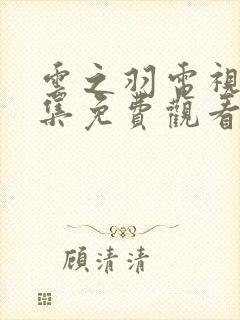 雲之羽電視
集免費觀看
顧清清